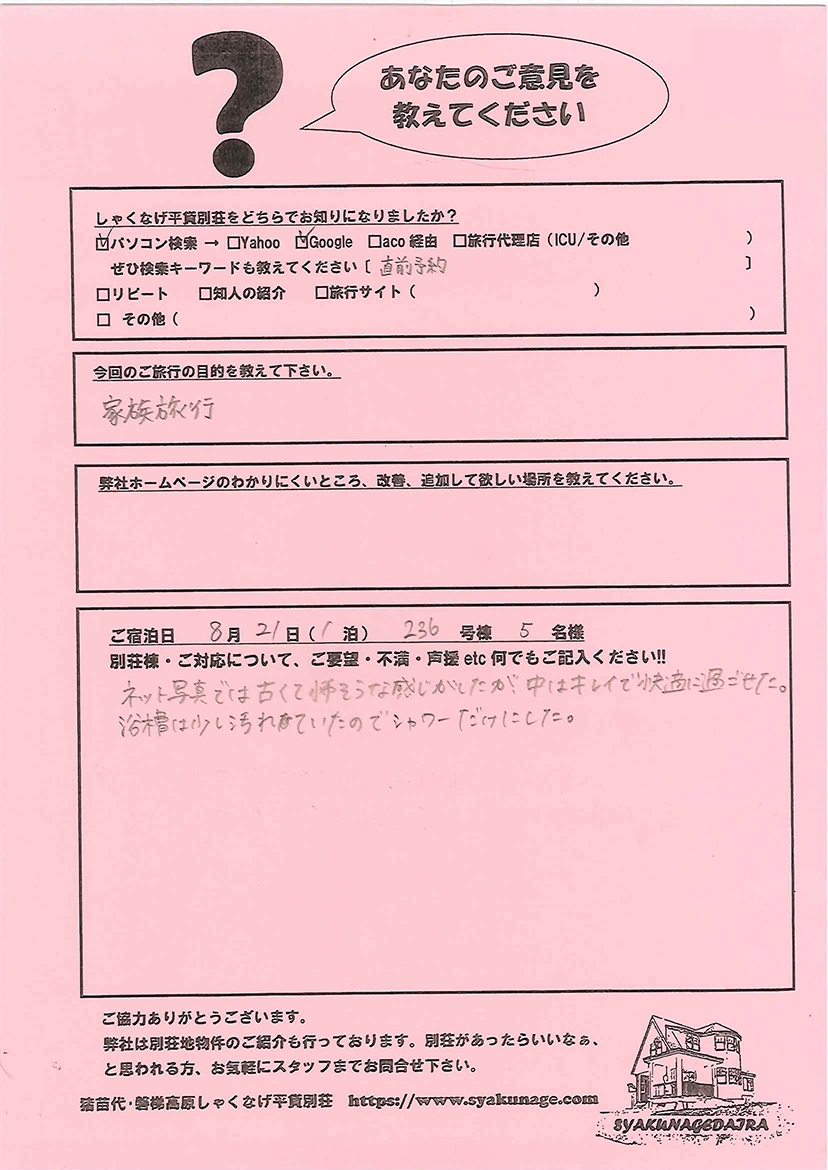 ?
あなたのご意見を
教えてください
しゃくなげ平貸別荘をどちらでお知りになりましたか？
☑パソコン検索 → □Yahoo ☑Google □aco 経由 □旅行代理店（ICU/その他 ）
ぜひ検索キーワードも教えてください［ 直前予約 ］
□リピート □知人の紹介 □旅行サイト（ ）
□ その他（ ）
今回のご旅行の目的を教えて下さい。
家族旅行
弊社ホームページのわかりにくいところ、改善、追加して欲しい場所を教えてください。
ご宿泊日 8月 21日（1 泊） 236 号棟 5 名様
別荘棟・ご対応について、ご要望・不満・声援 etc 何でもご記入ください!!
ネット写真では古くて怖そうな感じがしたが、中はキレイで快適に過ごせた。
浴槽は少し汚れきていたのでシャワーだけにした。
ご協力ありがとうございます。
弊社は別荘地物件のご紹介も行っております。別荘があったらいいなぁ、
と思われる方、お気軽にスタッフまでお問合せ下さい。
猪苗代・磐梯高原しゃくなげ平貸別荘 https://www.syakunage.com
SYAKUNAGEDAIRA